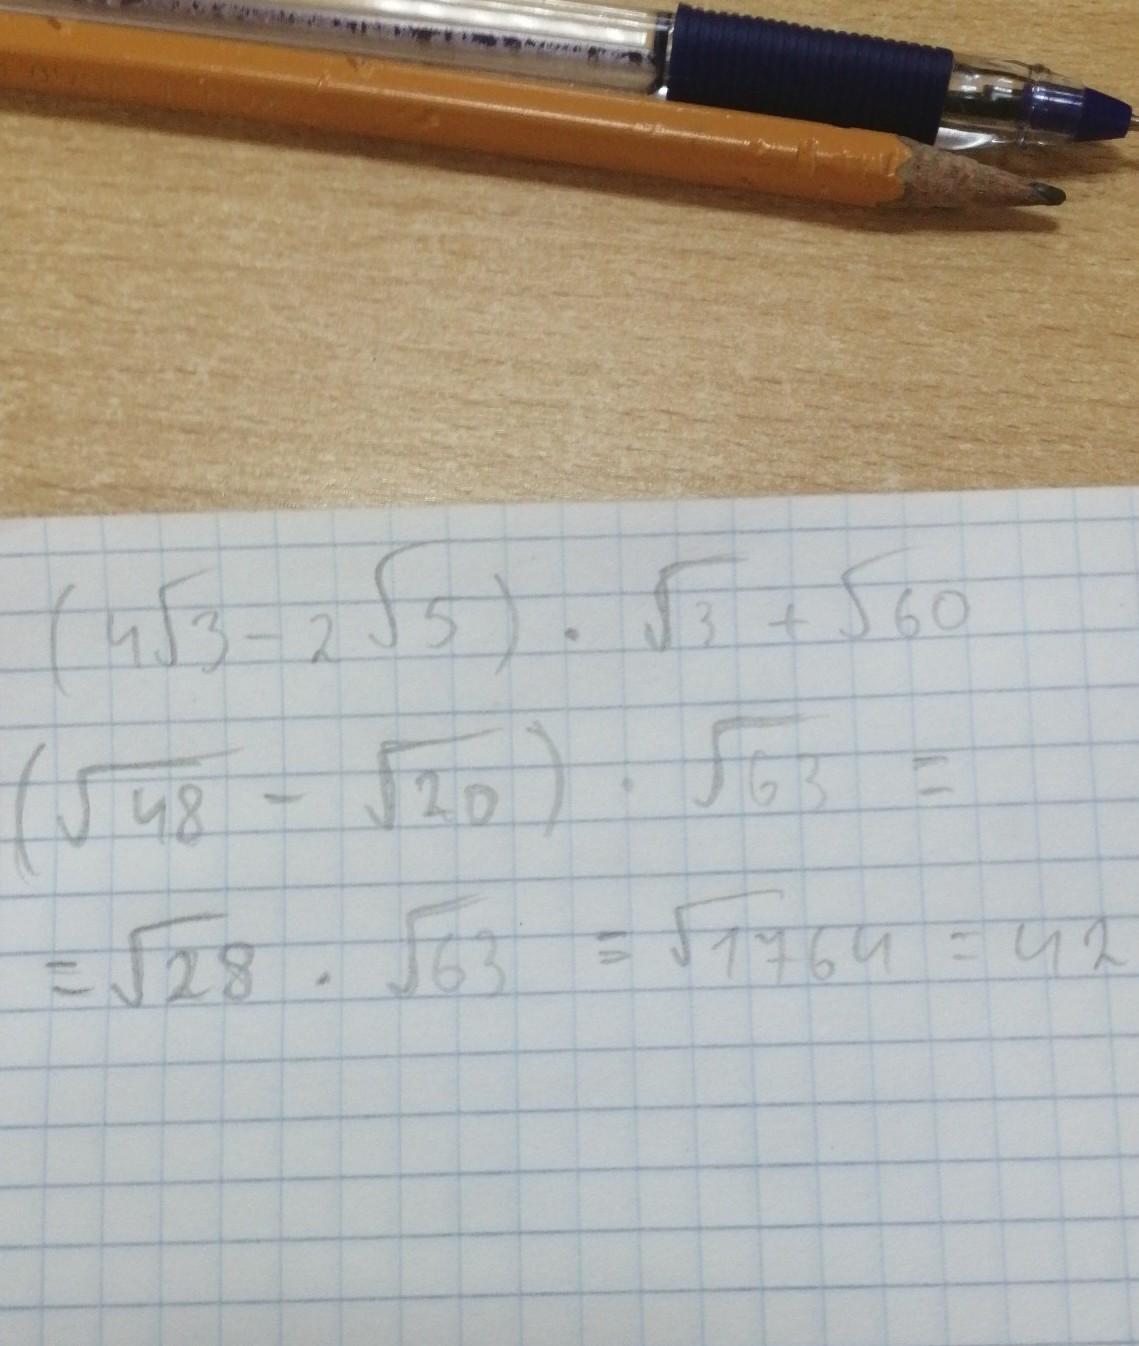 (4√3 - 2√5) · √3 + √60
(√48 - √20) · √63 =
= √28 · √63 = √1764 = 42